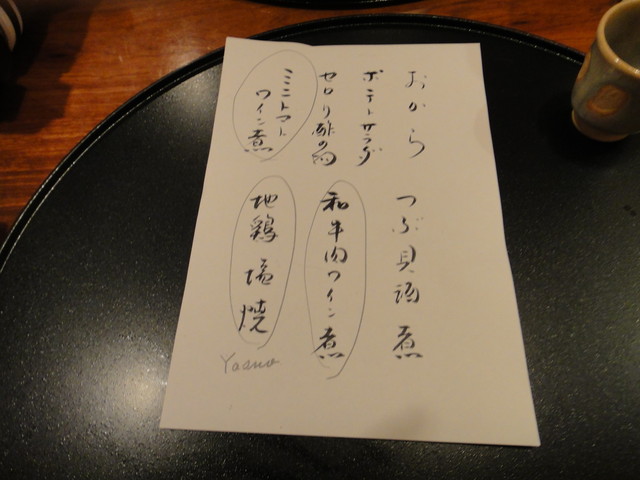 おから
ポテトサラダ
セロリ酢の物
ミニトマト
ワイン煮
つぶ貝酒煮
和牛肉ワイン煮
地鶏塩焼